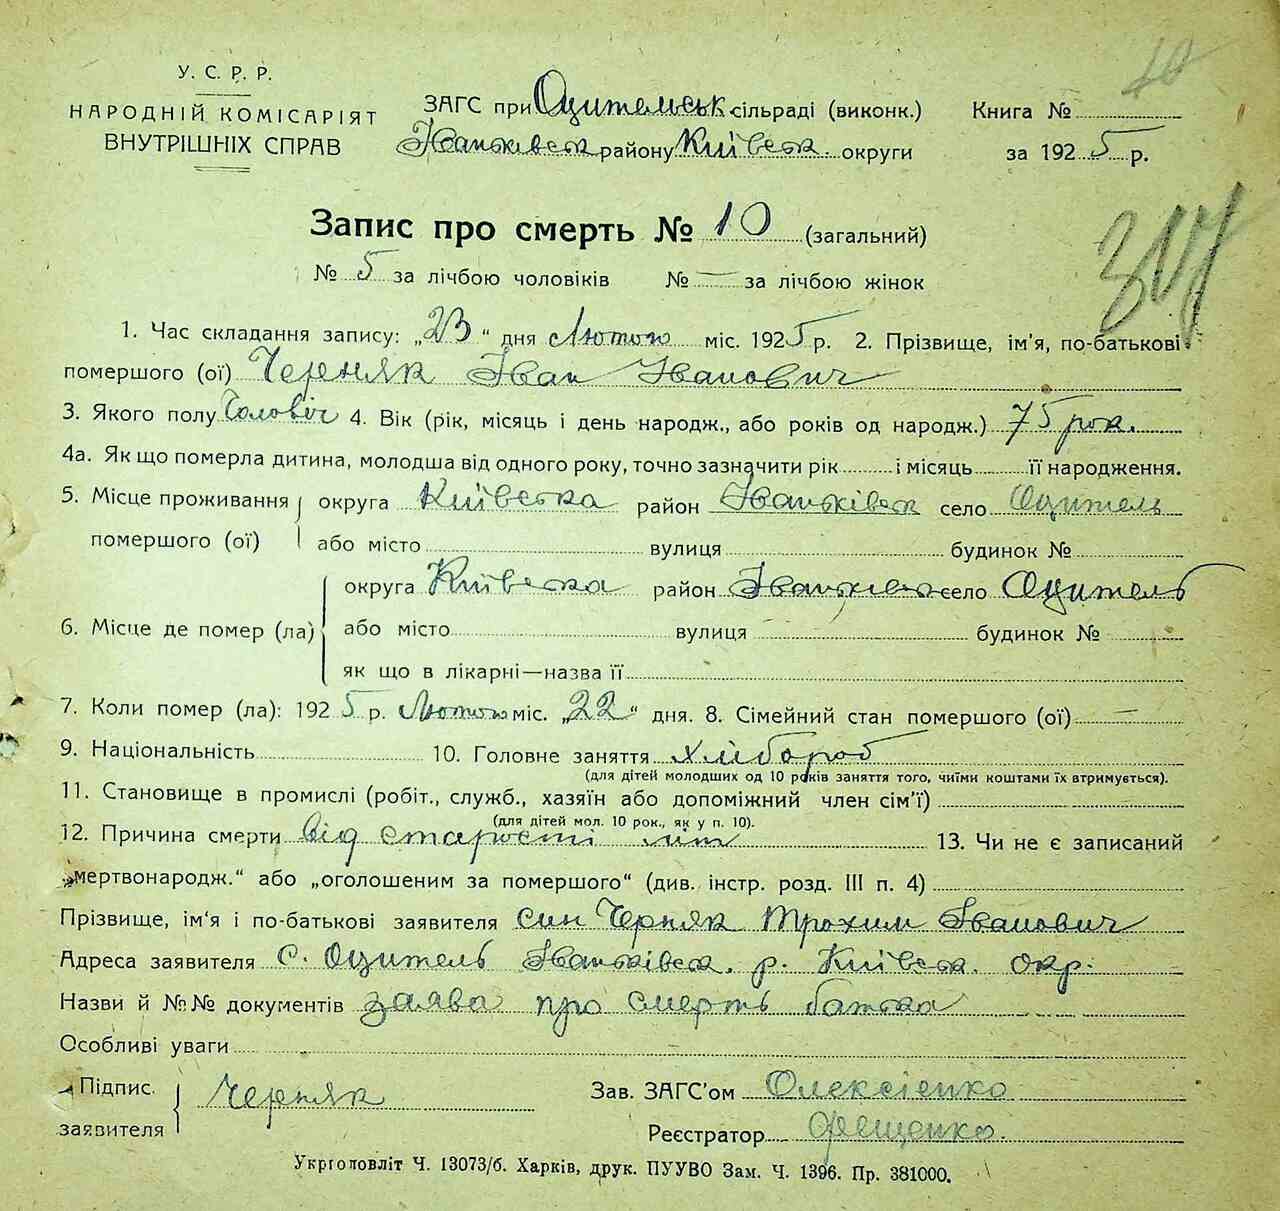 10
У. С. Р. Р.
НАРОДНІЙ КОМІСАРІЯТ
ВНУТРІШНІХ СПРАВ
ЗАГС при Оцительськ. сільраді (виконк.)
Іваньківськ району Київськ. округи
Книга №
за 1925 р.
Запис про смерть № 10 (загальний)
№ 5 за лічбою чоловіків № — за лічбою жінок
1. Час складання запису: „23“ дня Лютого міс. 1925 р. 2. Прізвище, ім'я, по-батькові
помершого (ої) Черняк Іван Іванович
3. Якого полу Чоловіч 4. Вік (рік, місяць і день народж., або років од народж.) 75 рок.
4а. Як що померла дитина, молодша від одного року, точно зазначити рік і місяць її народження.
5. Місце проживання помершого (ої) округа Київська район Іваньківськ село Оцитель
або місто вулиця будинок №
6. Місце де помер (ла) округа Київська район Іваньківськ село Оцитель
або місто вулиця будинок №
як що в лікарні—назва її
7. Коли помер (ла): 1925 р. Лютого міс. „22“ дня. 8. Сімейний стан помершого (ої) —
9. Національність 10. Головне заняття хлібороб
(для дітей молодших од 10 років заняття того, чиїми коштами їх втримується).
11. Становище в промислі (робіт., служб., хазяїн або допоміжний член сім'ї)
(для дітей мол. 10 рок., як у п. 10).
12. Причина смерти від старості літ 13. Чи не є записаний
„мертвонародж.“ або „оголошеним за помершого“ (див. інстр. розд. III п. 4)
Прізвище, ім'я і по-батькові заявителя син Черняк Трохим Іванович
Адреса заявителя с. Оцитель Іваньківськ. р. Київськ. окр.
Назви й №№ документів заява про смерть батька
Особливі уваги
Підпис. заявителя Черняк
Зав. ЗАГС'ом Олексієнко
Реєстратор
Укрголовліт Ч. 13073/б. Харків, друк. ПУУВО Зам. Ч. 1396. Пр. 381000.